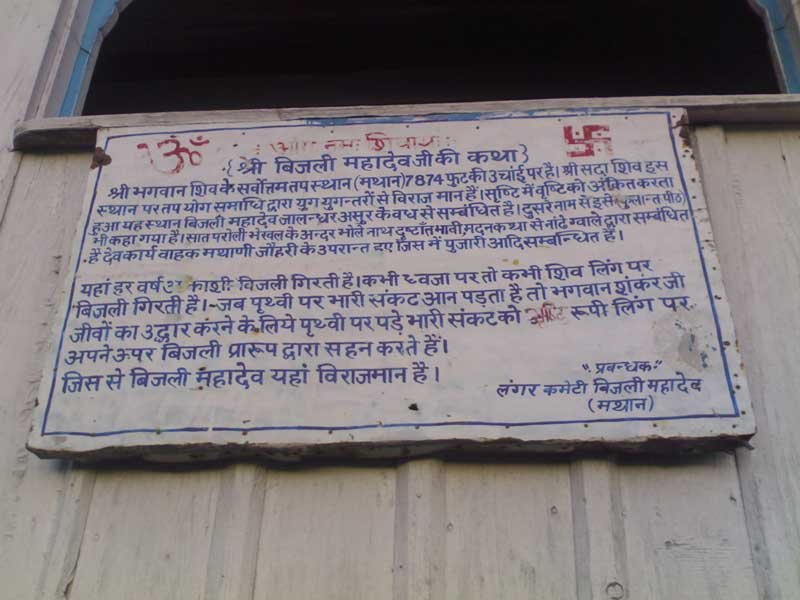 ॐ नमः शिवाय
{श्री बिजली महादेवजी की कथा}
श्री भगवान शिव के सर्वोत्तम तप स्थान (मथान) 7874 फुट की उंचाई पर है। श्री सदा शिव इस
स्थान पर तप योग समाधि द्वारा युग युगन्तरों से विराज मान हैं। सृष्टि में वृष्टि को अंकित करता
हुआ यह स्थान बिजली महादेव जालन्धर असुर के वध से सम्बंधित है। दुसरे नाम से इसे पीठ)
भी कहा गया है। सात परोली भेखल के अन्दर भोले नाथ मदन कथा से नांढे ग्वाले द्वारा सम्बंधित
है देव कार्य वाहक मथाणी जौहरी के उपरान्त हुए जिस में पुजारी आदि सम्बन्धित हैं।
यहां हर वर्ष बिजली गिरती है। कभी ध्वजा पर तो कभी शिव लिंग पर
बिजली गिरती है। जब पृथ्वी पर भारी संकट आन पड़ता है तो भगवान शंकर जी
जीवों का उद्धार करने के लिये पृथ्वी पर पड़े भारी संकट को रूपी लिंग पर
अपने ऊपर बिजली प्रारूप द्वारा सहन करते हैं।
जिस से बिजली महादेव यहां विराजमान हैं।
"प्रबन्धक"
लंगर कमेटी बिजली महादेव
(मथान)